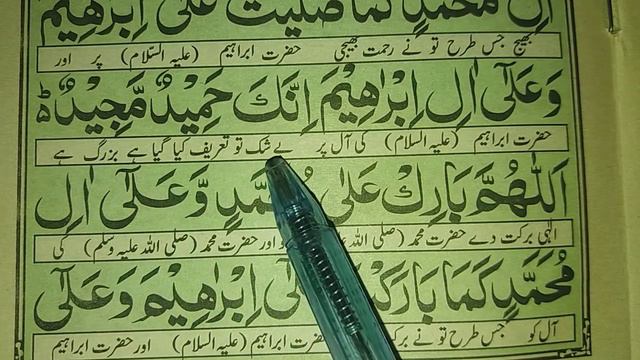 اٰلِ مُحَمَّدٍ كَمَا صَلَّيْتَ عَلٰٓى اِبْرٰهِيْمَ
بھیج جس طرح تو نے رحمت بھیجی حضرت ابراہیم (علیہ السّلام) پر اور
وَعَلٰٓى اٰلِ اِبْرٰهِيْمَ اِنَّكَ حَمِيْدٌ مَّجِيْدٌ ؕ
حضرت ابراہیم (علیہ السلام) کی آل پر بے شک تو تعریف کیا گیا ہے بزرگ ہے
اَللّٰهُمَّ بَارِكْ عَلٰى مُحَمَّدٍ وَّعَلٰٓى اٰلِ
الٰہی برکت دے حضرت محمد (صلی اللہ اور حضرت محمد (صلی اللہ علیہ وسلم) کی
مُحَمَّدٍ كَمَا بَارَكْتَ عَلٰٓى اِبْرٰهِيْمَ وَعَلٰٓى
آل کو جس طرح تو نے ابراہیم (علیہ السلام) اور حضرت ابراہیم